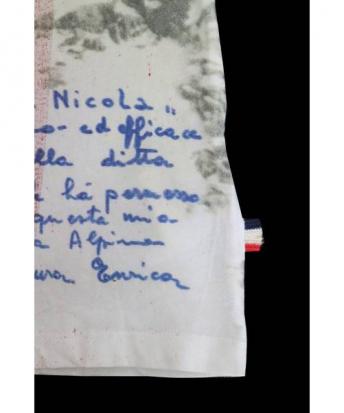 Nicola "
o- ed efficace
lla ditta
ha permesso
questa mia
a Alpina
Enrica